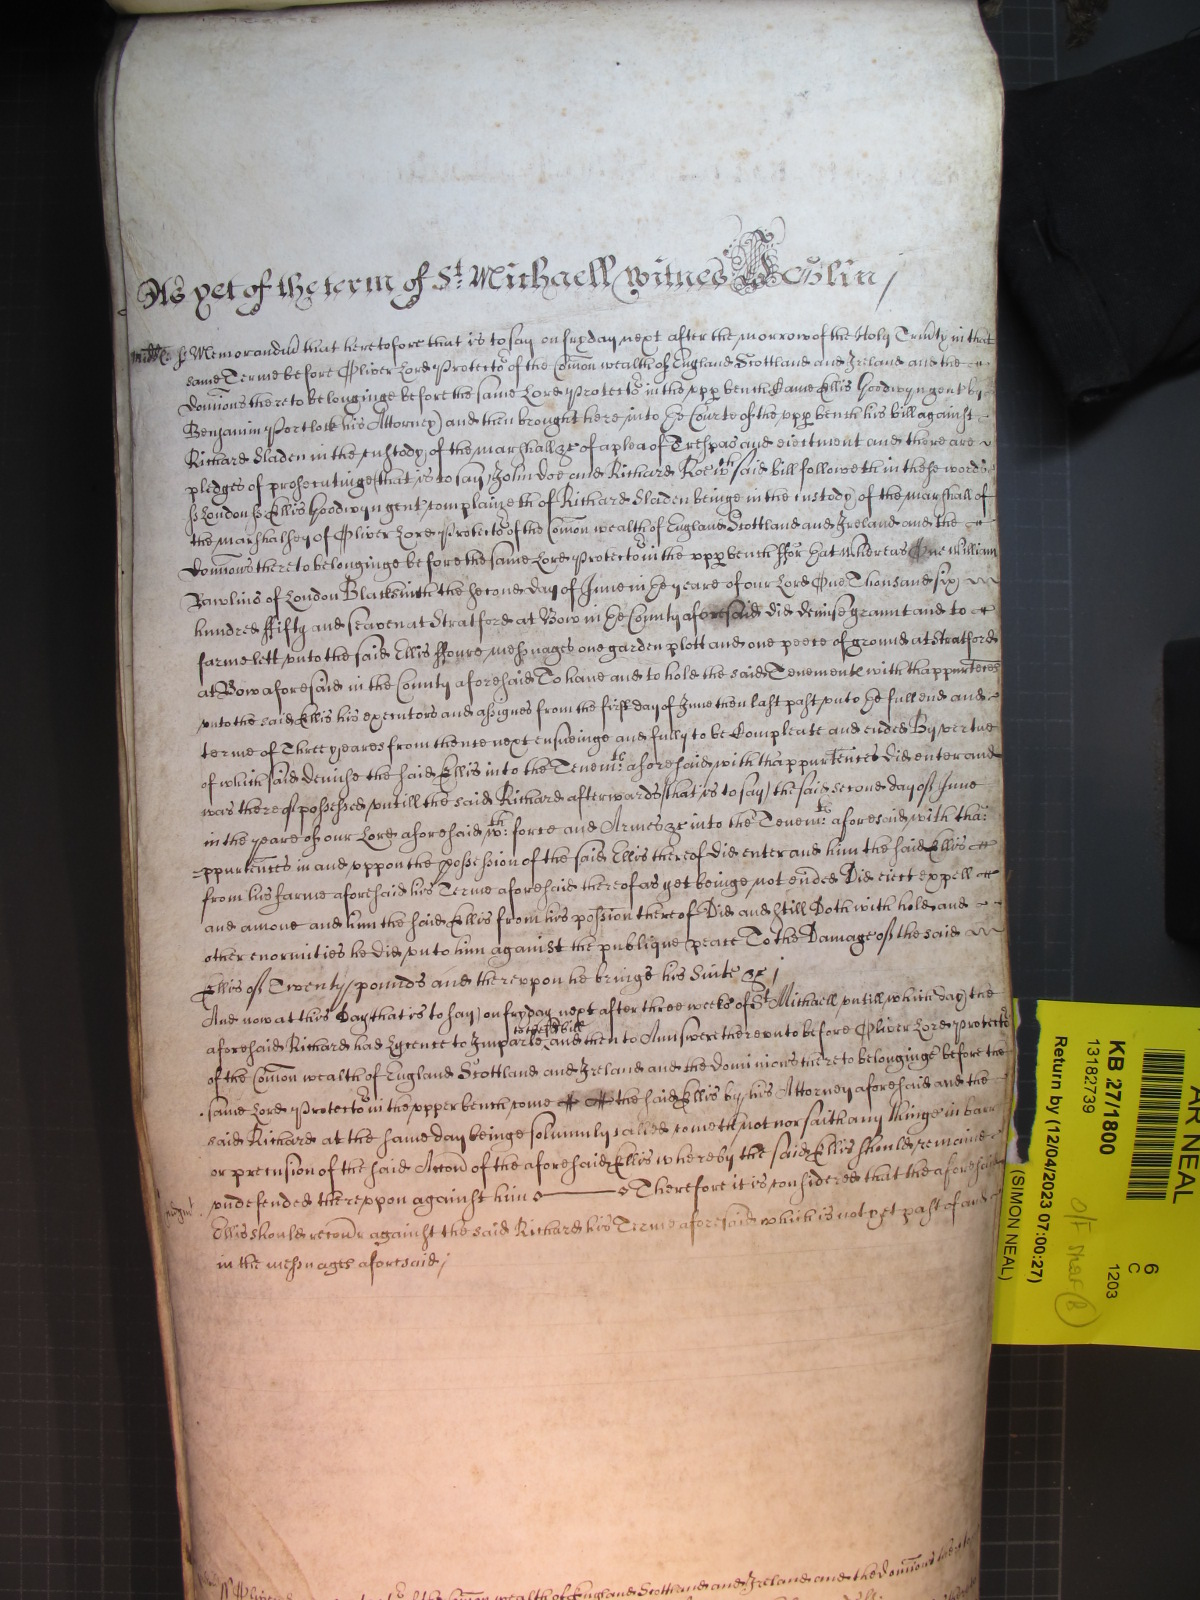 As yet of the term of St. Michaell witnes Jo Glin /
Midds ss Memorandu that heretofore that is to say on fryday next after the morrow of the Holy Trinity in that
same Terme before Oliver Lord Protector of the Comon wealth of England Scottland and Ireland and the
Domions thereto belonginge before the same Lord Protector in the upp bench Came Ellis Goodwyn gent by
Benjamin Portlock his Attorney) and then brought here into ye Courte of the upp bench his bill against
Richard Sladen in the custody of the marshall &c of a plea of Trespas and eiectment and there are
pledges of prosecutinge (that is to say) John Doe and Richard Roe wch said bill followeth in these words
ss London ss Ellis Goodwyn gent complaineth of Richard Sladen beinge in the custody) of the marshall of
the marshalsey of Oliver Lord Protector of the Comon wealth of England Scottland and Ireland and the
Domions thereto belonginge before the same Lord Protector in the upp bench ffor yat whereas One William
Rawlins of London Blacksmith the second day of June in ye yeare of our Lord One Thousand six
hundred ffifty and seaven at Stratford at Bow in ye County aforesaid did demise graunt and to
farme lett unto the said Ellis ffoure messuages one garden plott and one peece of ground at Stratford
at Bow aforesaid in the County aforesaid To have and to hold the said Tenements with thappurtences
unto the said Ellis his executors and assignes from the first day of June then last past unto ye full end and
terme of Three yeares from thence next ensueinge and fully to be Compleate and ended By vertue
of which said demise the said Ellis into the Tenemts aforesaid with thappurtences did enter and
was thereof possessed untill the said Richard afterwards (that is to say) the said second day of June
in the yeare of our Lord aforesaid wth force and Armes &c into the Tenemts aforesaid with tha:
=ppurtences in and uppon the possession of the said Ellis thereof did enter and him the said Ellis
from his farme aforesaid his Terme aforesaid thereof as yet beinge not ended Did eiect expell
and amove and him the said Ellis from his possion thereof Did and still Doth with hold and
other enormities he did unto him against the publique peace To the Damage of the said
Ellis of Twenty pounds and thereupon he brings his suite &c /
And now at this Day that is to say) on fryday next after three weeks of St Michaell untill which day) the
aforesaid Richard had Lycence to Imparle to the said bill and then to Annswere thereunto before Oliver Lord Protector
of the Comon wealth of England Scottland and Ireland and the dominions thereto belonginge before the
same Lord Protector in the upper bench come the said Ellis by his Attorney aforesaid and the
said Richard at the same day beinge solemnly called cometh not nor saith any thinge in barr
or precusion of the said Accon of the aforesaid Ellis whereby the said Ellis should remaine
undefended thereuppon against him Therefore it is considered that the aforesaid
Judgmt
Ellis should recover against the said Richard his Terme aforesaid which is not yet past of and
in the messuages aforesaid /
of the Comon wealth of England Scottland and Ireland and the domions thereto
AR NEAL
6
C
1203
KB 27/1800
13182739
Return by (12/04/2023 07:00:27)
(SIMON NEAL)